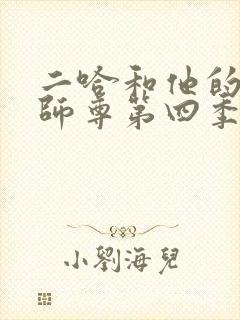 二哈和他的
師尊第四季
小劉海兒